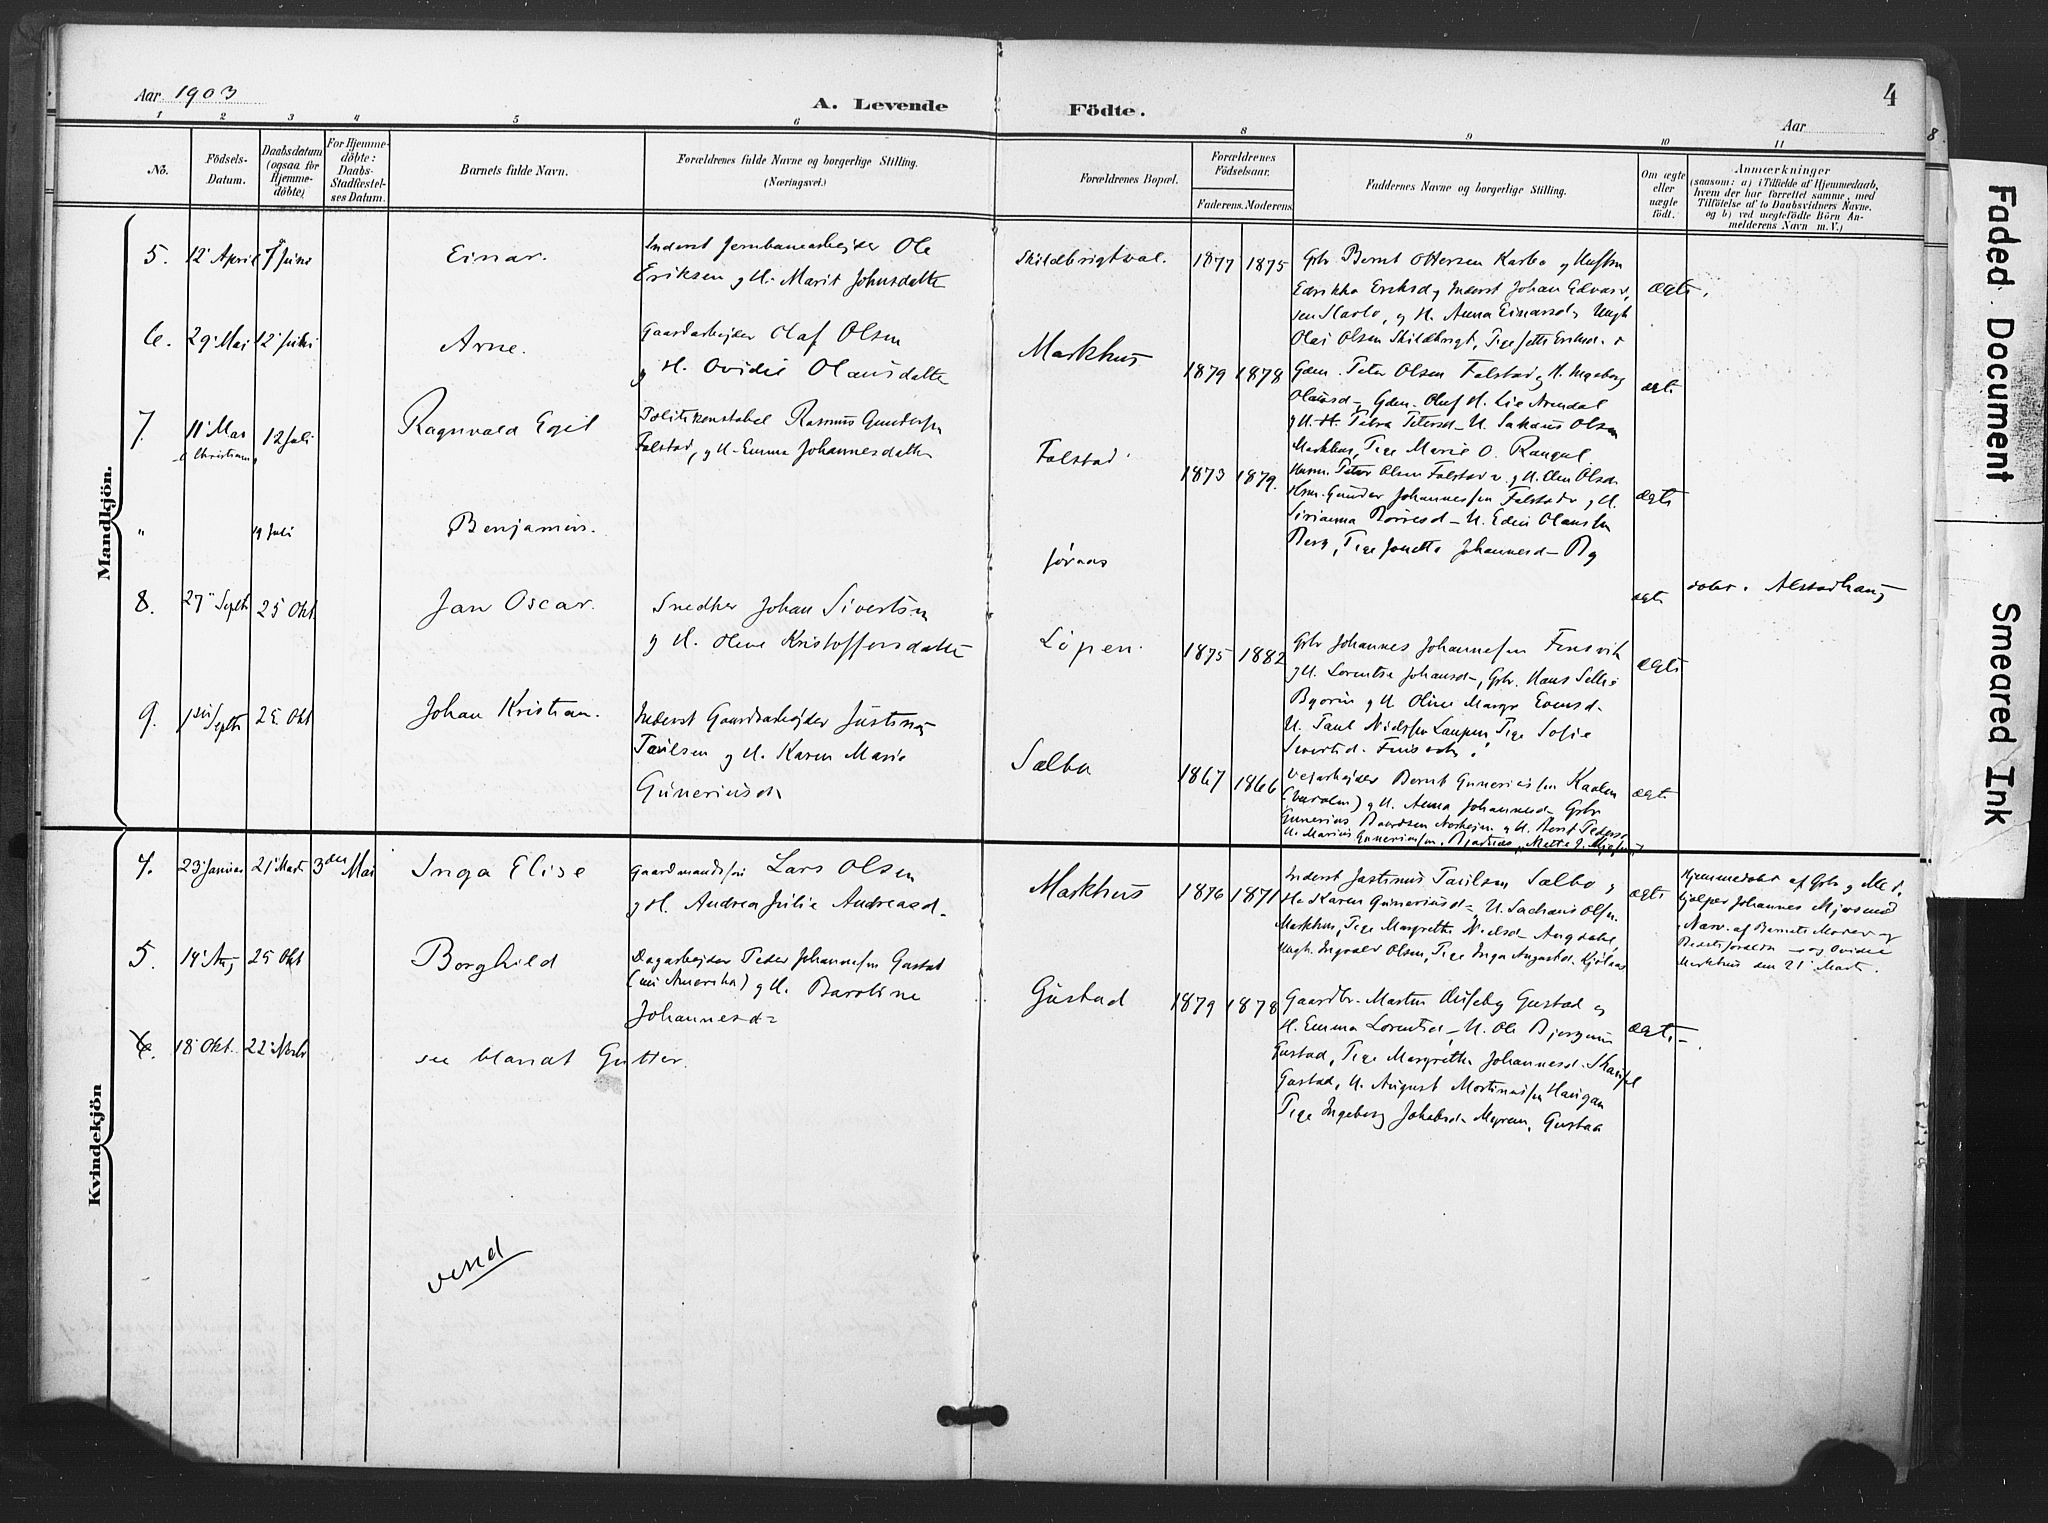 Aar 1903
A. Levende
Födte.
4
Aar
1 2 3 4 5 6 8 9 10 11
8
No.
Födsels-
Datum.
Daabsdatum
(ogsaa for
Hjemme-
döbte).
For Hjemme-
döbte:
Daabs-
Stadfæstel-
ses Datum.
Barnets fulde Navn.
Forældrenes fulde Navne og borgerlige Stilling.
(Næringsvei.)
Forældrenes Bopæl.
Forældrenes
Födselsaar.
Faderens. Moderens.
Faddernes Navne og borgerlige Stilling.
Om ægte
eller
uægte
födt.
Anmærkninger
(saasom: a) i Tilfælde af Hjemmedaab,
hvem der har forrettet samme, med
Tilföielse af to Daabsvidners Navne,
og b) ved uegtefödte Börn An-
melderens Navn m. V.)
Mandkjön.
5. 12 April 7 Juni
Einar.
Inderst Jernbanearbejder Ole
Eriksen og H. Marit Johnsdatte
Skildbrigtval.
1877 1875
Gbr Bernt Ottersen Karbo og Hustru
Edrikka Eriksd og Inderst Johan Edvard
sen Karbo, og H. Anna Einarsd, Ungk
Olai Olsen Skildbrigt, Pige Jette Eriksd.
ægte.
6. 29 Mai 12 Juli
Arne.
Gaardarbejder Olaf Olsen
og H. Ovidie Olausdatte
Markhus
1879 1878
Gdm. Peter Olsen Falstad og H. Ingeborg
Olausd, Gdm. Oluf H. Lie Arendal
og H. Petra Petersd U. Sakarus Olsen
Markhus, Pige Marie O. Rangul.
ægte
7. 11 Mai 12 Juli
Christiania
Ragnvald Egil
Politikonstabel Rasmus Gundersen
Falstad, og H. Emma Johannesdatte
Falstad
1873 1879.
Husm. Peter Olsen Falstad v. og H. Elen Olsd
Hsm. Gunder Johannessen Falstad v og H.
Sirianna Börresd U. Edin Olaussen
Berg, Pige Jonette Johannesd By
ægte
" 19 Juli
Benjamin.
Jörnas
ægte
döbt i Alstadhaug
8. 27 Septb 25 Okt
Jan Oscar.
Snedker Johan Sivertsen
og H. Oline Kristoffersdatte
Löpen.
1875 1882
Gbr Johannes Johannessen Finsvik
og H. Lorentse Johansd, Gbr. Hans Sellie
Byborin og H. Oline Margr Evensd
U. Paul Nielssen Laupen Pige Sofie
Sivertsd. Finsvik.
ægte
9. 1ste Septb 25 Okt
Johan Kristian.
Inderst Gaardsarbejder Justinus
Paulsen og H. Karen Marie
Guneriusd
Sælbo
1867 1866
Vejarbejder Bernt Guneriussen Kaalen
(Værdalen) og H. Anna Johannesd Gbr
Gunerius Baardsen Norheim og H. Berit Pedersd
U. Marius Guneriussen, Bjartnes, Mette J.
ægte
Kvindekjön
4. 23 Januar 21 Mart 3die Mai
Inga Elise
Gaardmandssön Lars Olsen
og H. Andrea Julie Andreasd
Markhus
1876 1871
Inderst Justinus Paulsen Sælbo og
H. Karen Guneriusd, U. Sacharis Olsen
Markhus, Pige Margrethe Nielsd Augdahl,
Ungk. Ingvald Olsen, Pige Inga Augustd. Kjölaas
ægte
Hjemmedöbt af Gbr og Med.
hjælper Johannes Mjösund
Nærv. af Barnets Moder og
Bedsteforældre og Ovidie
Markhus den 21 Marts.
5. 14 Aug 25 Okt
Borghild
Dagarbejder Peder Johannessen Gustad
(nu Amerika) og H. Baroline
Johannesd
Gustad
1879 1878
Gaardbr. Martin Huseby Gustad og
H. Emma Lorentsd, U. Ole Bjergum
Gustad, Pige Margrethe Johannesd. Skaufel
Gustad, U. August Mortinussen Haugan
Pige Ingeborg Jakobsd Myren, Gustad
ægte
6. 18 Okt. 22 Novbr
se blandt Gutter.
vend
Faded Document
Smeared Ink